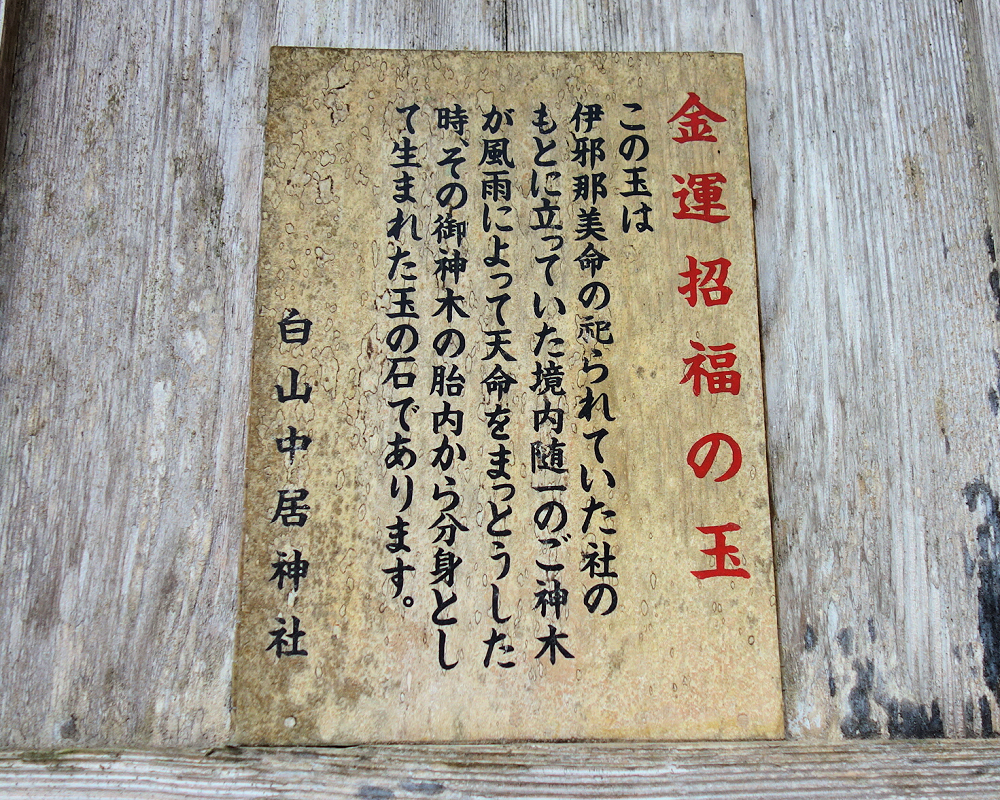 金運招福の玉
この玉は
伊邪那美命の祀られていた社の
もとに立っていた境内随一のご神木
が風雨によって天命をまっとうした
時、その御神木の胎内から分身とし
て生まれた玉の石であります。
白山中居神社